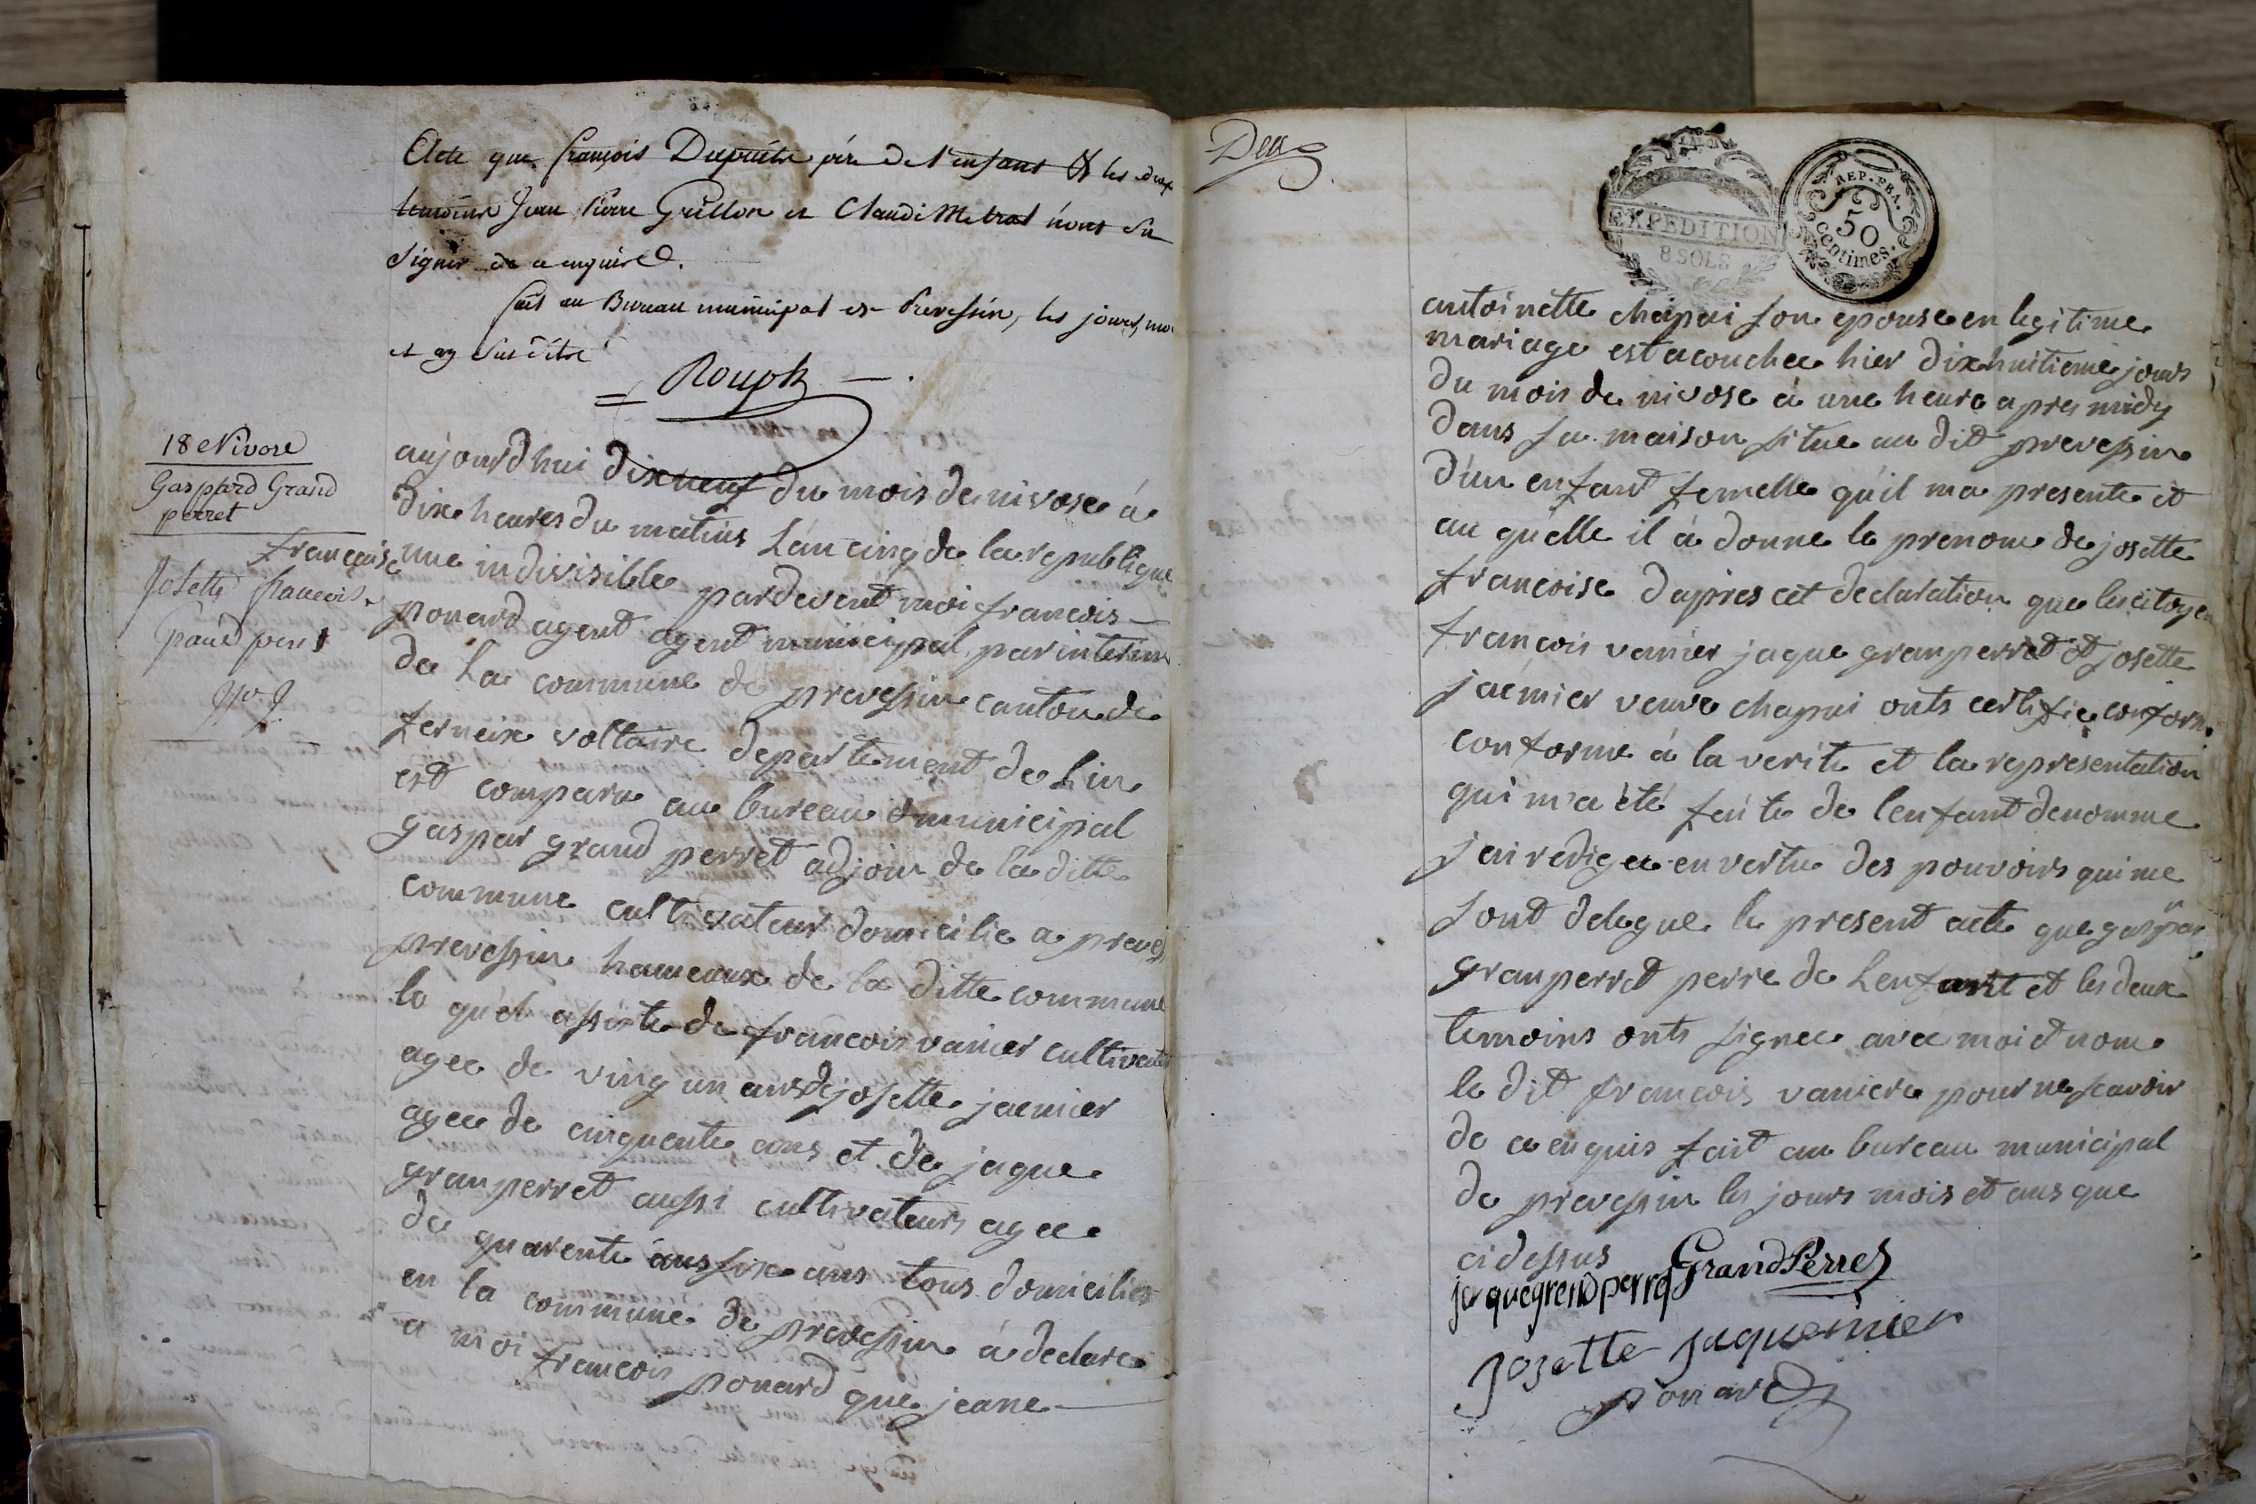 Acte que François Dupuitre père de l'enfant & les deux
temoins Jean Pierre Grillon et Claude Metral n'ont su
signer de ce enquire.
fait au Bureau municipal de Prevessin, les jours, moi
et an susditre
Rouph
18 Nivose
Gaspard Grand
perret
françoise
Josette françoise
Grand perret
aujourdhui dixneuf du mois de nivose à
dix heures du matins L'an cinq de la republique
une indivisible pardevent moi francois
ponard agent agent municipal par interim
de La commune de prevessin canton de
ferneix voltaire departement de Lin
est comparu au bureau municipal
gaspar grand perret adjoin de la ditte
commune cultivateur domicilie a preves
prevessin hameaux de la ditte commune
le quel assiste de francois vanier cultivateur
agee de ving un ans de josette jacmier
agee de cinquente ans et de jaque
granperret aussi cultivateurs agee
de quarente ans six ans tous domicilies
en la commune de prevessin à declare
a moi francois ponard que jeane
Deux
EXPEDITION
8 SOLS
REP. FRA.
50
centimes.
antoinette chapui son epouse en legitime
mariage est acouchee hier dixhuitieme jours
du mois de nivose à une heure apres midy
dans sa maison situe au dit prevesin
d'un enfant femelle qu'il ma presente et
au quelle il à donne le prenom de josette
francoise d'apres cet declaration que les citoyen
françois vanier jaque granperret et josette
jacmier veuve chapui onts certifie conform
conforme à la verite et la representation
qui m'a été faite de l'enfant denomme
j'ai redigee en vertu des pouvoirs qui me
sont delegue le present acte que gaspar
granperret perre de Lenfant et les deux
temoins onts signee avec moi et nom
le dit francois vaniere pour ne scavoir
de ce enquis fait au bureau municipal
de prevessin les jours mois et ans que
cidessus
GrandPerret
jaquegrendperret
Jozette jaquemier
ponard